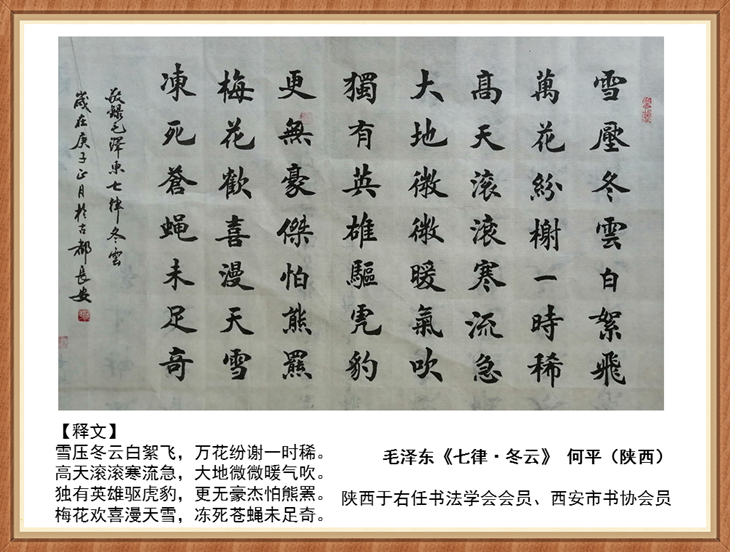 雪壓冬雲白絮飛
萬花紛榭一時稀
髙天滚滚寒流急
大地微微暖氣吹
獨有英雄驅虎豹
更無豪傑怕熊羆
梅花歡喜漫天雪
凍死蒼蝇未足奇
敬録毛澤東七律冬雲
歲在庚子正月於古都長安
【释文】
雪压冬云白絮飞，万花纷谢一时稀。
高天滚滚寒流急，大地微微暖气吹。
独有英雄驱虎豹，更无豪杰怕熊罴。
梅花欢喜漫天雪，冻死苍蝇未足奇。
毛泽东《七律·冬云》 何平（陕西）
陕西于右任书法学会会员、西安市书协会员